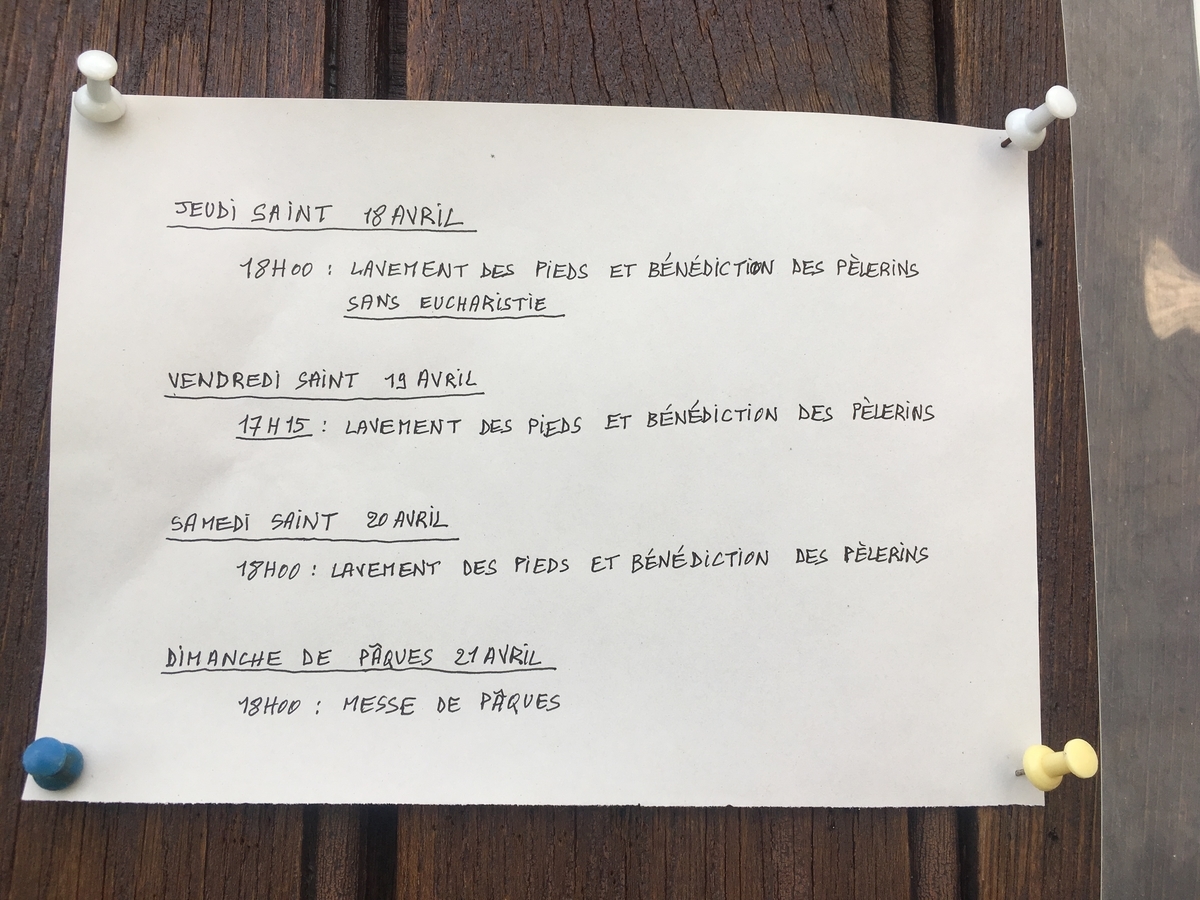 JEUDI SAINT 18 AVRIL
18H00 : LAVEMENT DES PIEDS ET BÉNÉDICTION DES PÈLERINS
SANS EUCHARISTIE
VENDREDI SAINT 19 AVRIL
17H15 : LAVEMENT DES PIEDS ET BÉNÉDICTION DES PÈLERINS
SAMEDI SAINT 20 AVRIL
18H00 : LAVEMENT DES PIEDS ET BÉNÉDICTION DES PÈLERINS
DIMANCHE DE PÂQUES 21 AVRIL
18H00 : MESSE DE PÂQUES